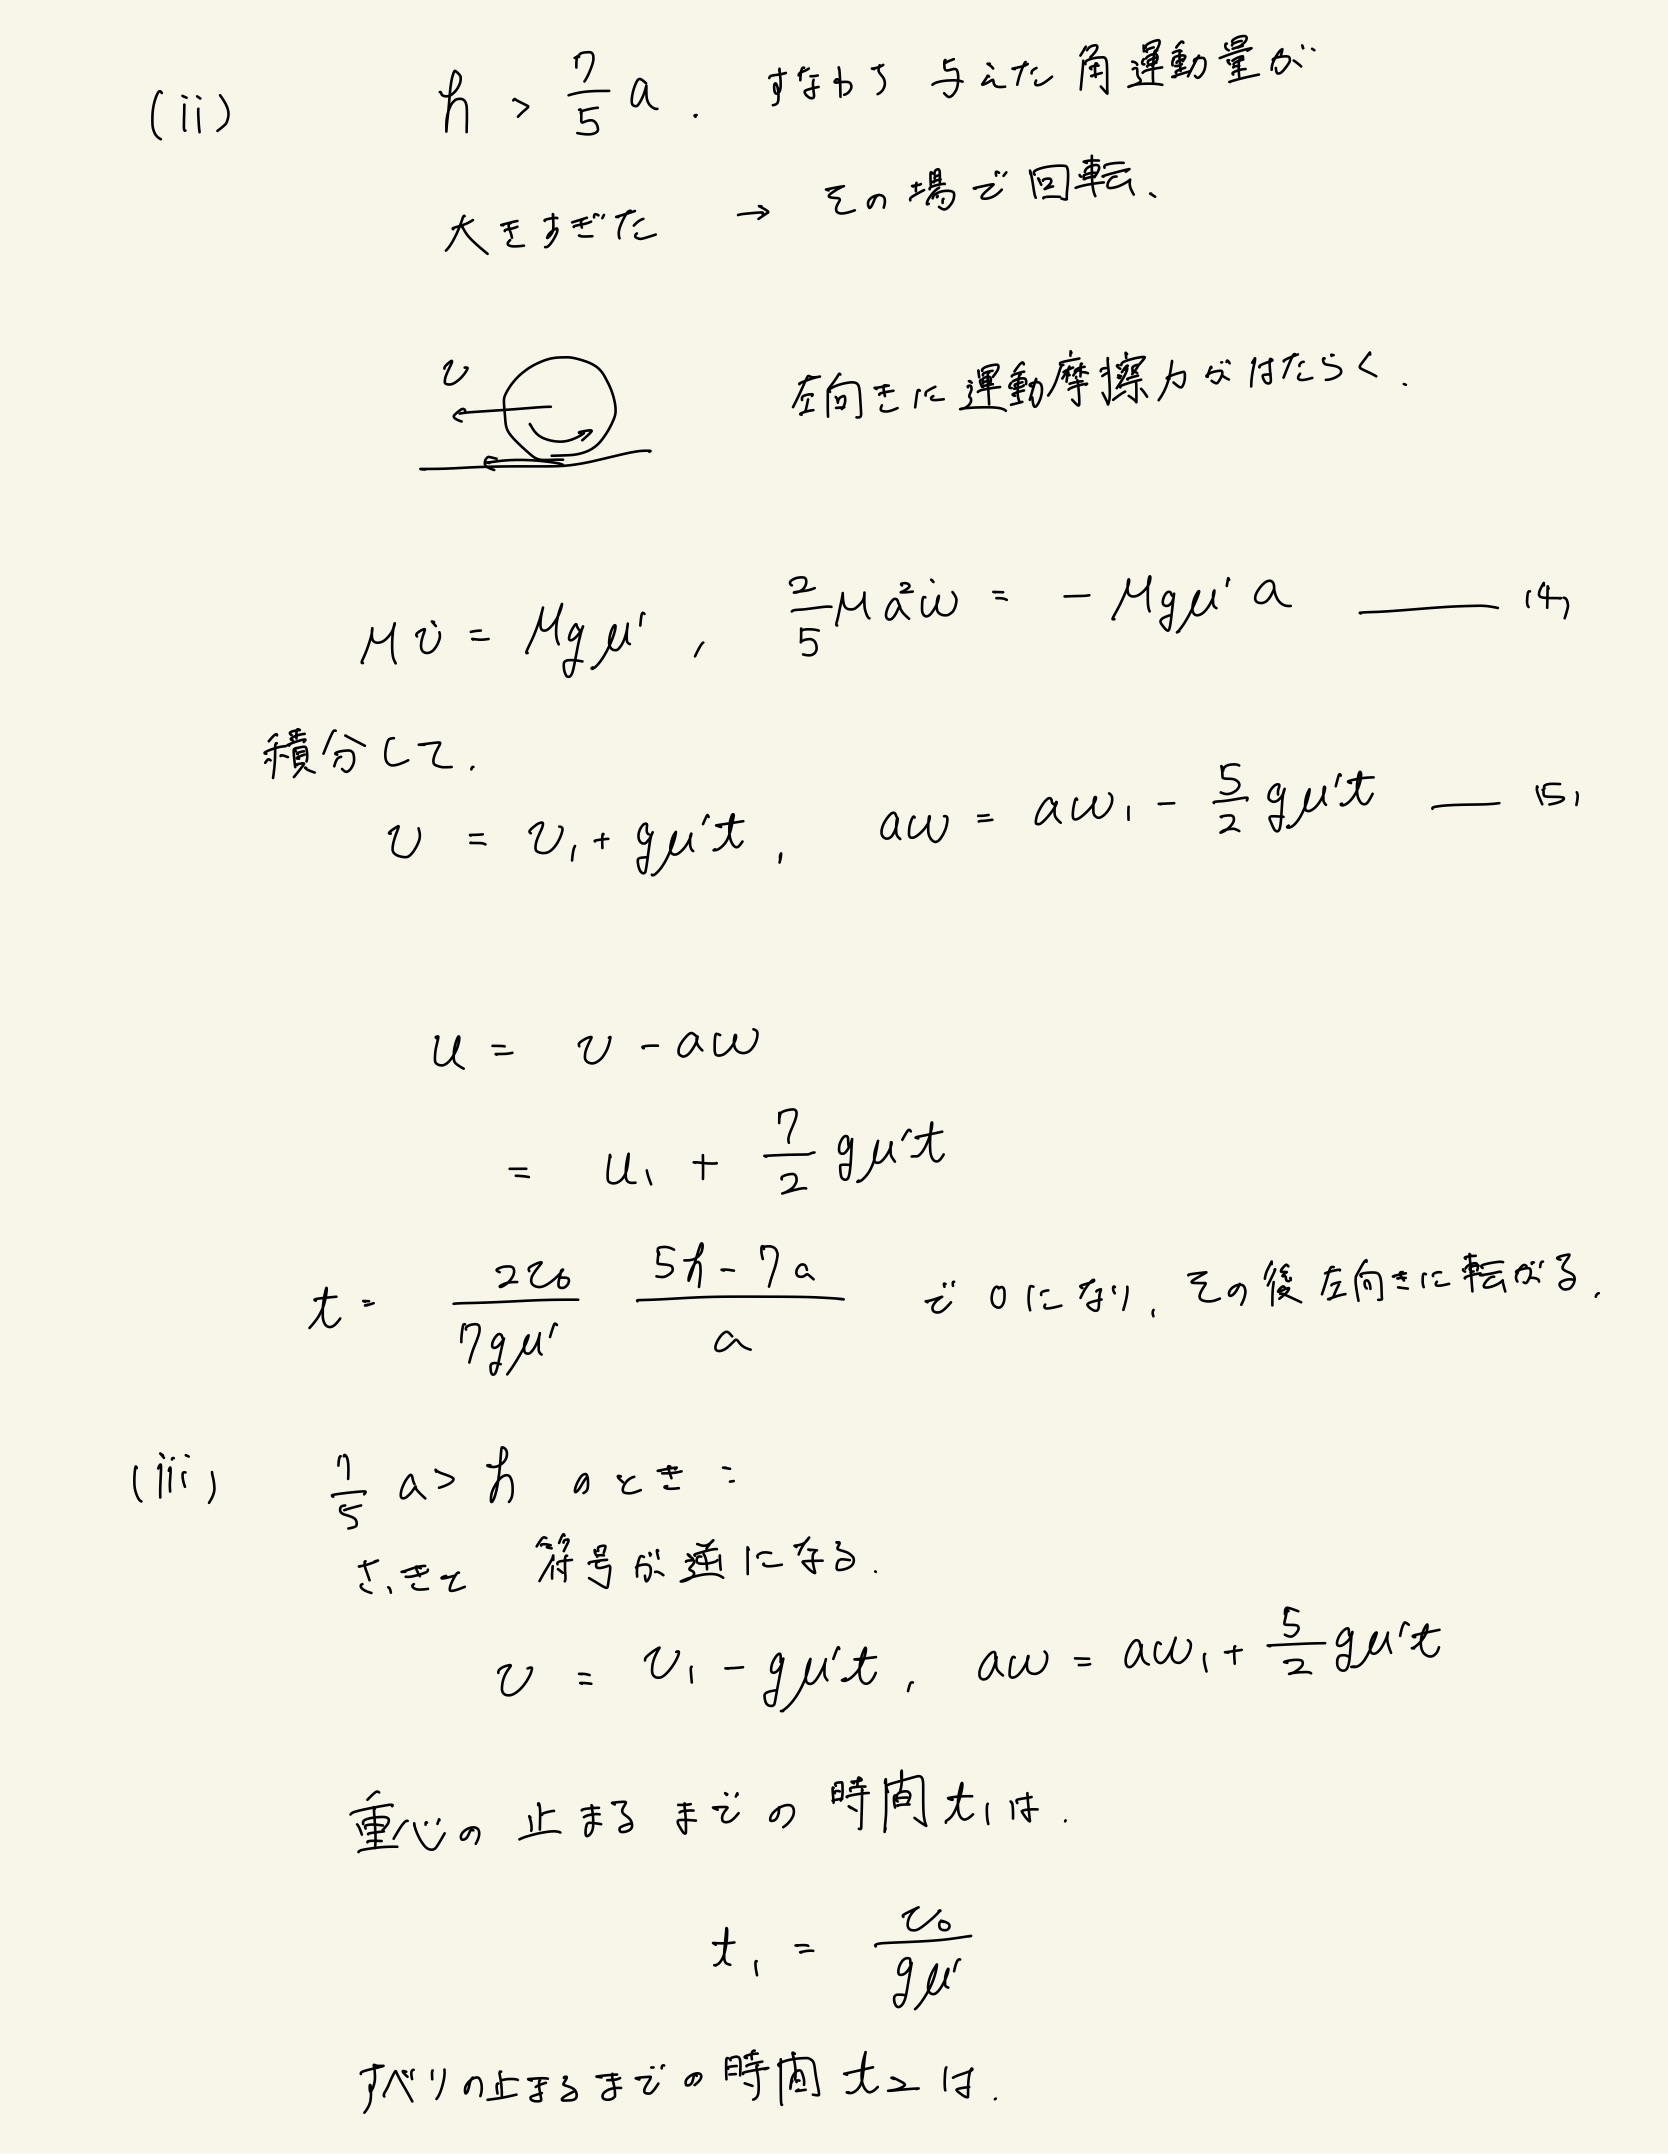 (ii) h > 7/5 a . すなわち 与えた 角運動量が
大きすぎた → その場で回転、
v
左向きに運動摩擦力がはたらく.
Mv̇ = Mgμ' , 2/5 Ma²ω̇ = - Mgμ' a —— (4)
積分して.
v = v₁ + gμ't , aω = aω₁ - 5/2 gμ't —— (5)
u = v - aω
= u₁ + 7/2 gμ't
t = 2v₀/7gμ' 5h - 7a/a で 0になり, その後左向きに転がる.
(iii) 7/5 a > h のとき :
さっきと 符号が逆になる.
v = v₁ - gμ't , aω = aω₁ + 5/2 gμ't
重心の 止まる までの 時間 t₁は.
t₁ = v₀/gμ'
すべりの止まるまでの時間 t₂ は.